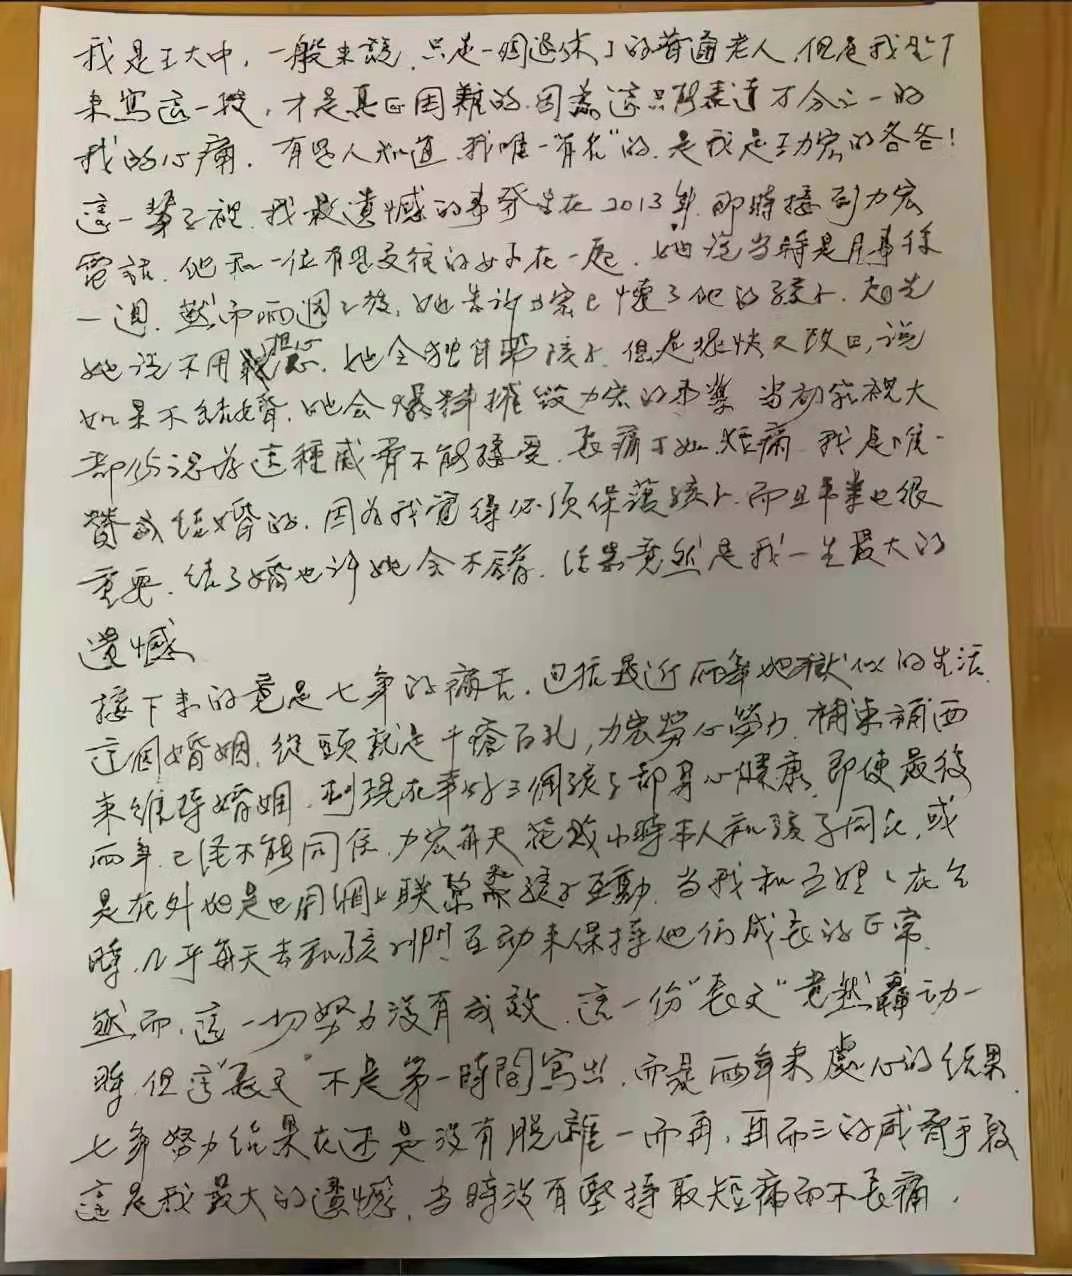 我是王大中，一般來說，只是一個退休了的普通老人，但是我坐下
來寫這一段，才是真正困難的，因為這只能表達万分之一的
我的心痛．有些人知道，我唯一"有名"的，是我是王力宏的爸爸！
這一輩子裡，我最遺憾的事發生在2013年，那時接到力宏
電話，他和一位有些交往的女子在一起．她說當時是月事後
一週．然而兩週之後，她告訴力宏已懷了他的孩子．起先
她說不用擔心，她会独自帶孩子．但是很快又改口，說
如果不結婚，她会爆料摧毀力宏的事業．當初家裡大
部份認為這種威脅不能接受．長痛不如短痛．我是唯一
贊成结婚的．因為我覺得必須保護孩子．而且事業也很
重要．結了婚也許她会不鬧．结果竟然是我一生最大的
遺憾
接下來的竟是七年的痛苦．包括最近兩年地獄似的生活．
這個婚姻，從頭就是千瘡百孔，力宏勞心勞力，補東補西
來維持婚姻．到現在幸好三個孩子都身心健康．即使最後
兩年，已经不能同住，力宏每天花数小時本人和孩子同在，或
是在外地是也用網上联繫和孩子互動．当我和立姐姐在台
時，几乎每天去和孩子們互动來保持他们成長的正常．
然而，這一切努力没有成效．這一份"長文"竟然轟动一
時，但這"長文"不是第一時間寫出，而是兩年來處心的结果．
七年努力结果在还是没有脱離一而再，再而三的威脅手段
這是我最大的遺憾，当時没有堅持取短痛而不長痛．